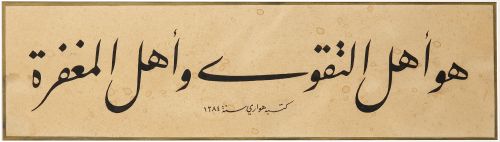 هو أهل التقوى وأهل المغفرة
كتبه هواري سنة ١٢٨٤